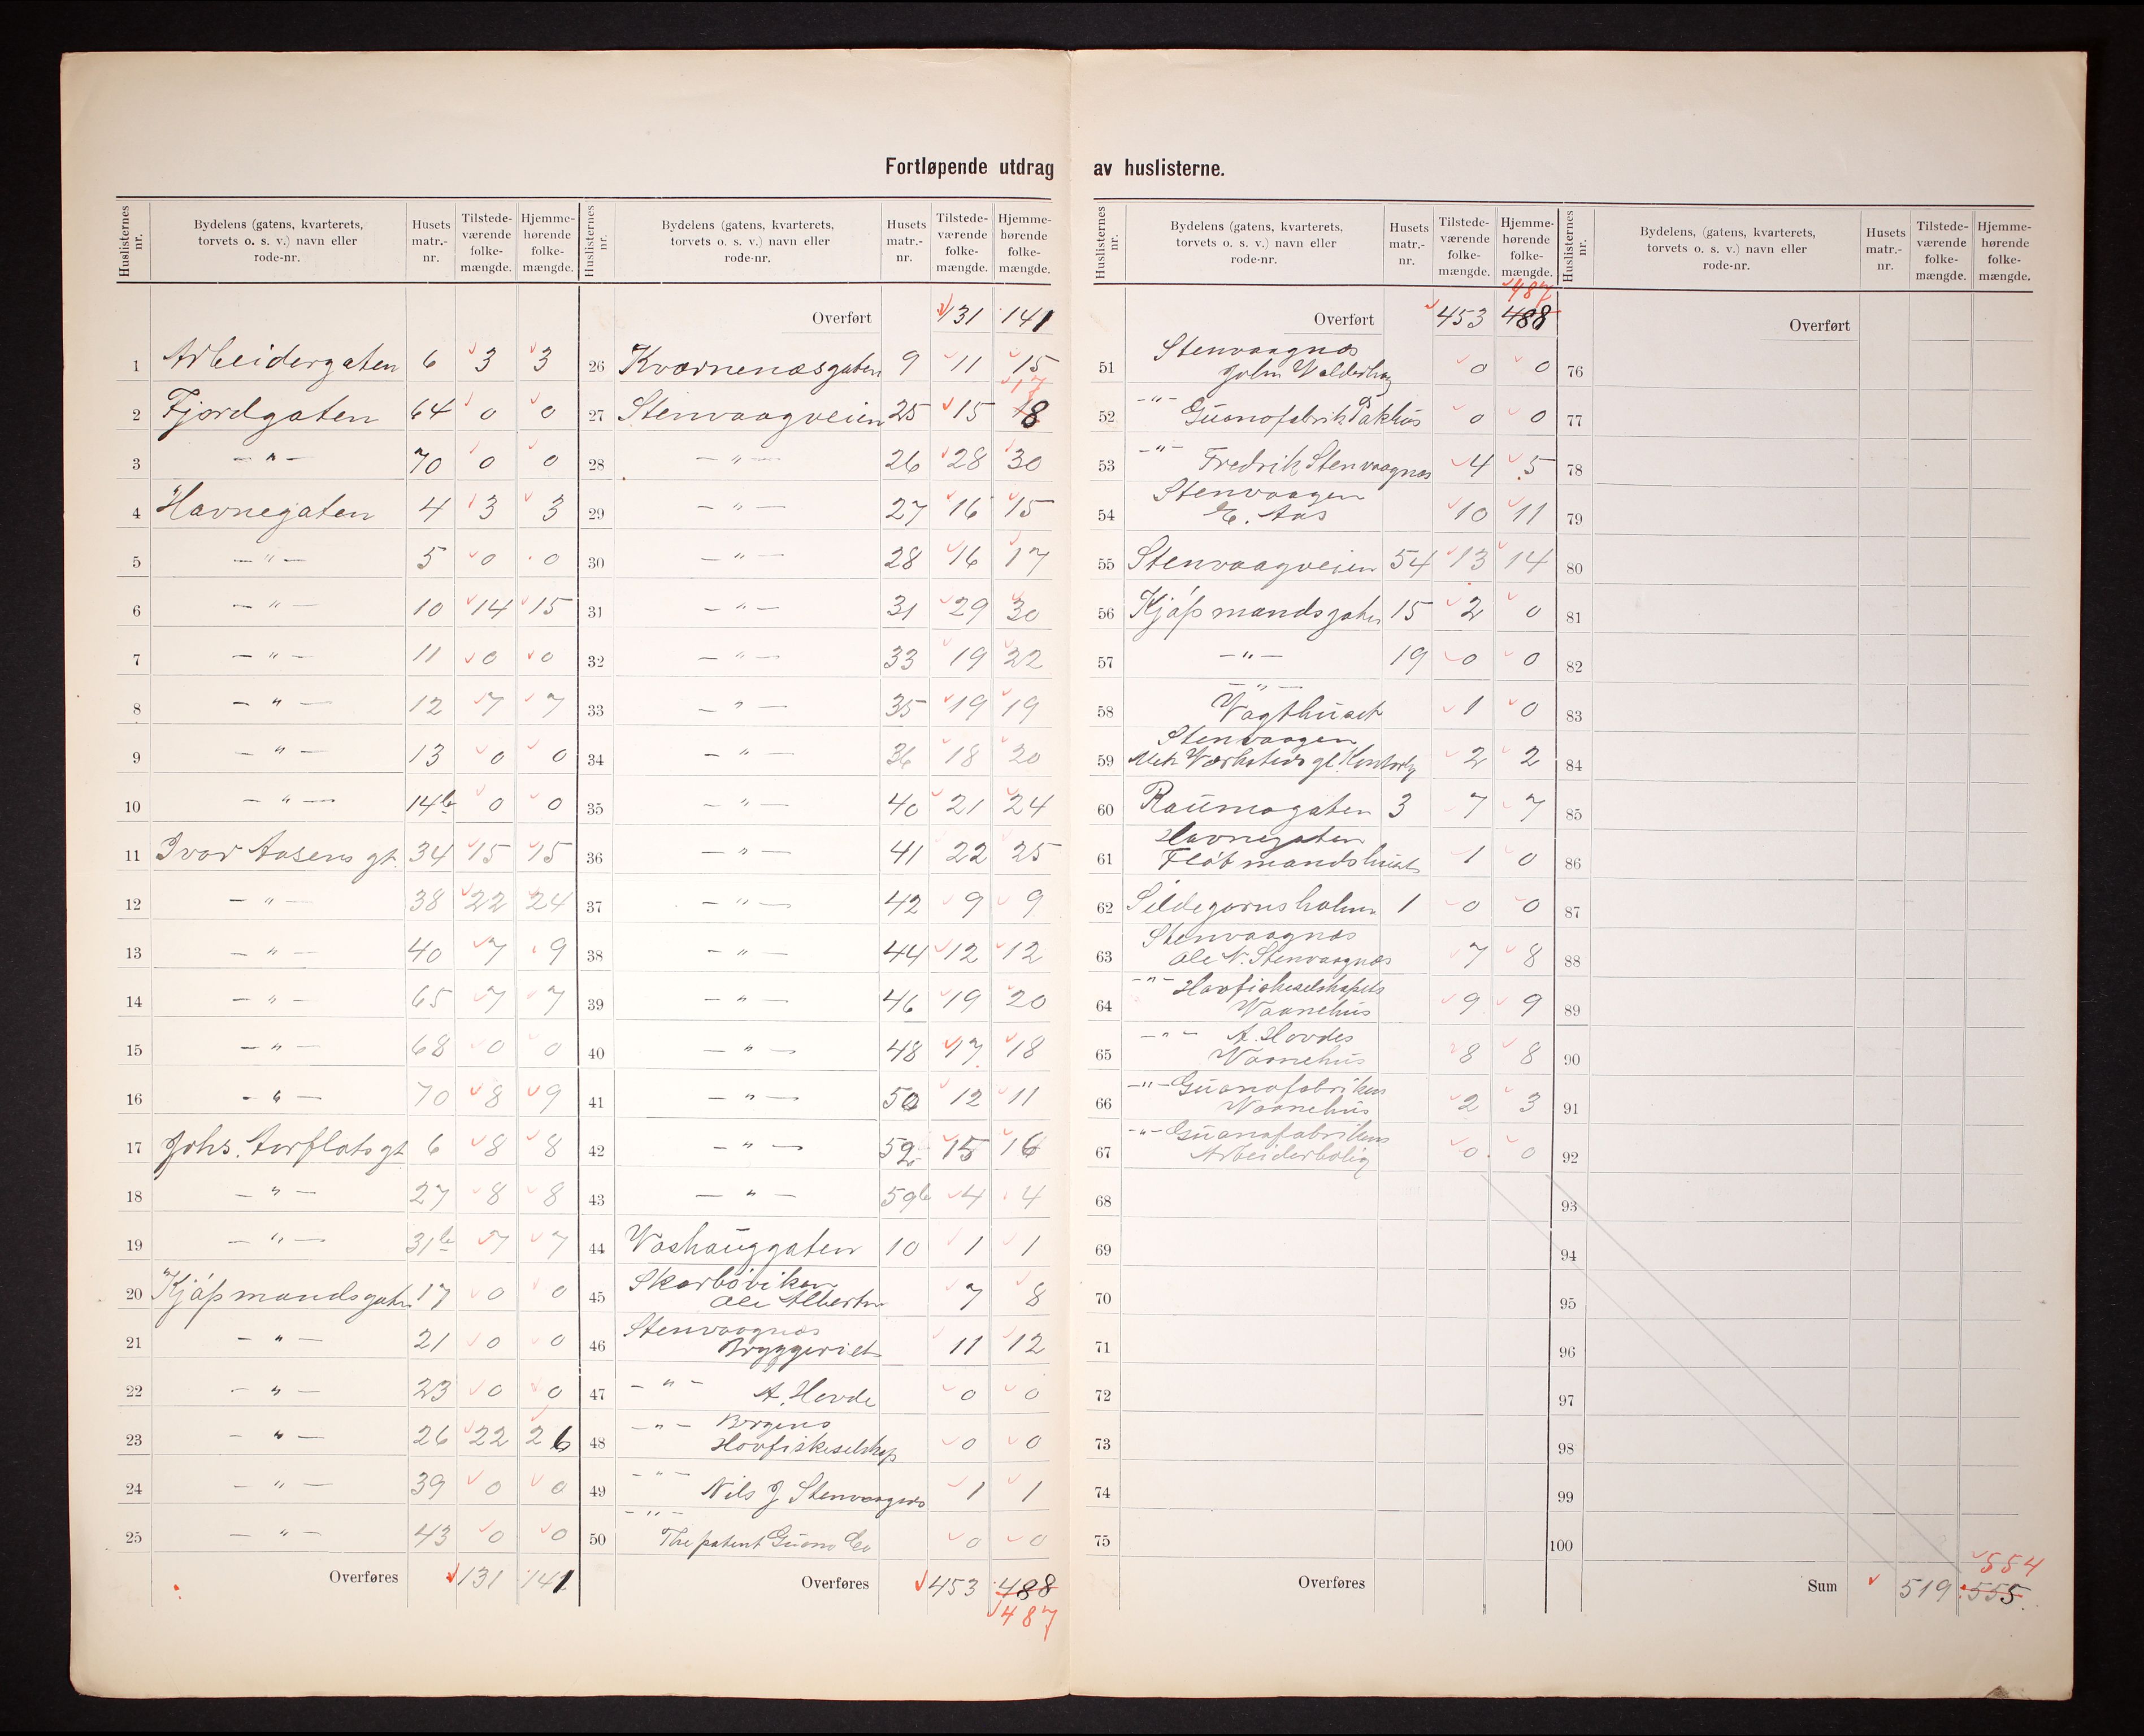 Fortløpende utdrag av huslisterne.
Huslisternes nr. | Bydelens (gatens, kvarterets, torvets o. s. v.) navn eller rode-nr. | Husets matr.-nr. | Tilstede-værende folke-mængde. | Hjemme-hørende folke-mængde.
1 Arbeidergaten 6 3 3
2 Fjordgaten 64 0 0
3 — " — 70 0 0
4 Havnegaten 4 3 3
5 — " — 5 0 0
6 — " — 10 14 15
7 — " — 11 0 0
8 — " — 12 7 7
9 — " — 13 0 0
10 — " — 14b 0 0
11 Ivar Aasens gt. 34 15 15
12 — " — 38 22 24
13 — " — 40 7 9
14 — " — 65 7 7
15 — " — 68 0 0
16 — " — 70 8 9
17 Johs. Aarflots gt 6 8 8
18 — " — 27 8 8
19 — " — 31b 7 7
20 Kjøpmandsgaten 17 0 0
21 — " — 21 0 0
22 — " — 23 0 0
23 — " — 26 22 26
24 — " — 39 0 0
25 — " — 43 0 0
Overføres 131 141
Huslisternes nr. | Bydelens (gatens, kvarterets, torvets o. s. v.) navn eller rode-nr. | Husets matr.-nr. | Tilstede-værende folke-mængde. | Hjemme-hørende folke-mængde.
Overført 131 141
26 Kvarnenæsgaten 9 11 15
17
27 Stenvaagveien 25 15 18
28 — " — 26 28 30
29 — " — 27 16 15
30 — " — 28 16 17
31 — " — 31 29 30
32 — " — 33 19 22
33 — " — 35 19 19
34 — " — 36 18 20
35 — " — 40 21 24
36 — " — 41 22 25
37 — " — 42 9 9
38 — " — 44 12 12
39 — " — 46 19 20
40 — " — 48 17 18
41 — " — 50 12 11
42 — " — 15 16
43 — " — 59b 4 4
44 Vashauggaten 10 1 1
45 Skarbøviken
Ole Albertsen 7 8
46 Stenvaagnæs
Bryggeriet 11 12
47 — " — A. Hovde 0 0
48 — " — Borgens
Havfiskeselskap 0 0
49 — " —
Nils J Stenvaagnæs 1 1
50 — " —
The patent Guano Co 0 0
Overføres 453 488
487
Huslisternes nr. | Bydelens (gatens, kvarterets, torvets o. s. v.) navn eller rode-nr. | Husets matr.-nr. | Tilstede-værende folke-mængde. | Hjemme-hørende folke-mængde.
487
Overført 453 488
51 Stenvaagnæs
John Valderhaug 0 0
52 — " — Guanofabrik Pakhus 0 0
53 — " — Fredrik Stenvaagnæs 4 5
54 Stenvaagen
E. Aas 10 11
55 Stenvaagveien 54 13 14
56 Kjøpmandsgaten 15 2 0
57 — " — 19 0 0
58 — " —
Vagthuset 1 0
59 Stenvaagen
Mek Værksteds gl. Kontorb 2 2
60 Raumagaten 3 7 7
61 Havnegaten
Fløtmandshuset 1 0
62 Sildegarnsholmen 1 0 0
63 Stenvaagnæs
Ole N. Stenvaagnæs 7 8
64 — " — Havfiskeselskapets
Vaanehus 9 9
65 — " — A. Hovdes
Vaanehus 8 8
66 — " — Guanofabrikens
Vaanehus 2 3
67 — " — Guanofabrikens
Arbeiderbolig 0 0
68
69
70
71
72
73
74
75
Overføres
Huslisternes nr. | Bydelens, (gatens, kvarterets, torvets o. s. v.) navn eller rode-nr. | Husets matr.-nr. | Tilstede-værende folke-mængde. | Hjemme-hørende folke-mængde.
Overført
76
77
78
79
80
81
82
83
84
85
86
87
88
89
90
91
92
93
94
95
96
97
98
99
100
554
Sum 519 555